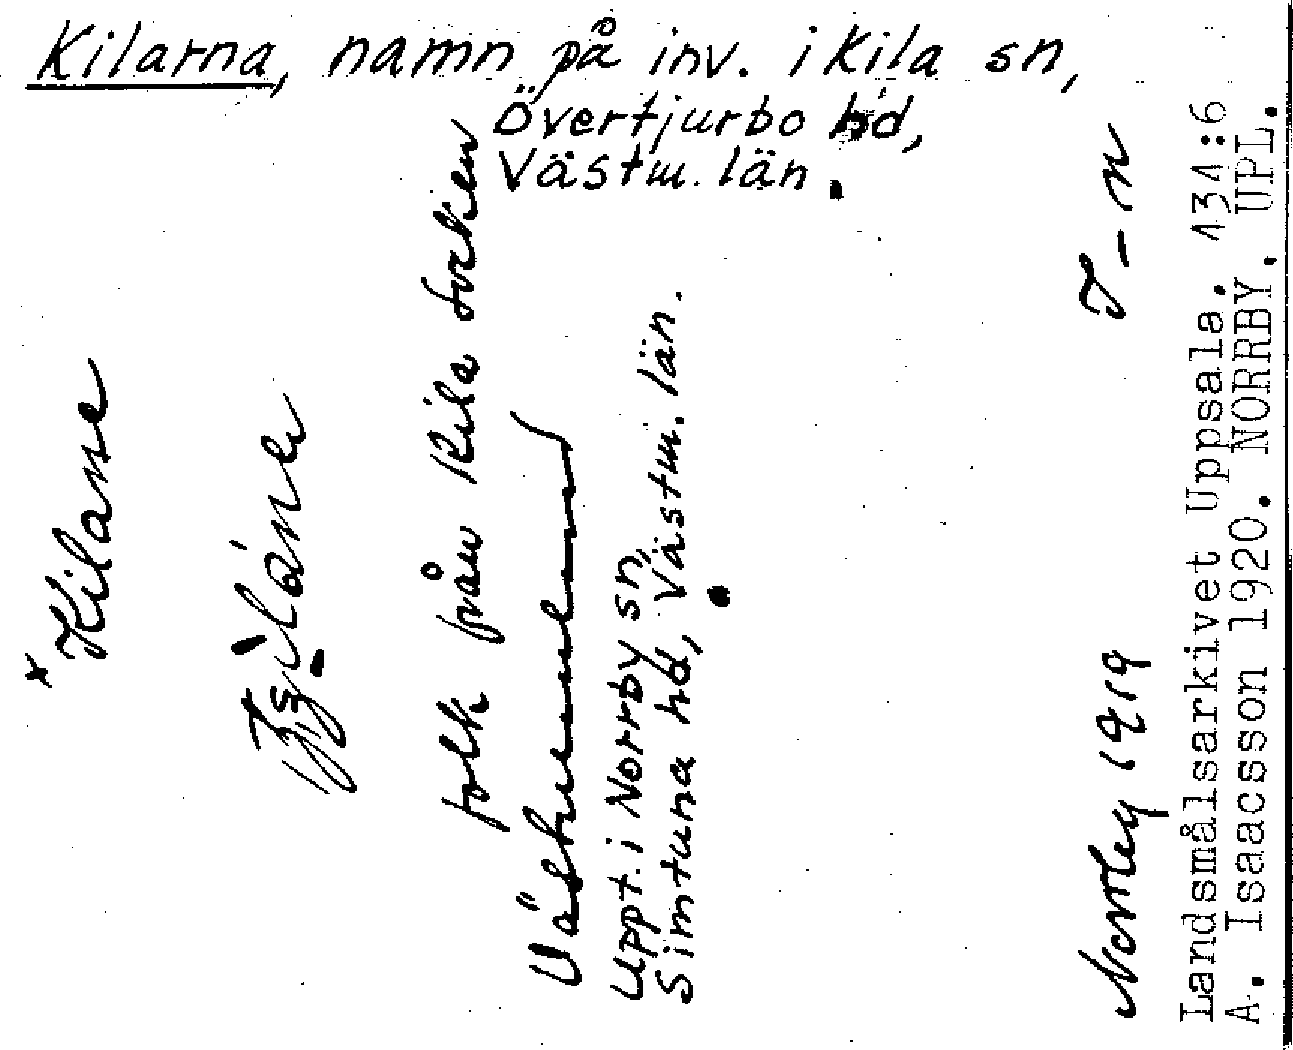 Kilarna, namn på inv. i Kila sn,
Övertjurbo hd,
Västm. län.
× Kilane
folk från Kila socken
Västmanland
Uppt. i Norrby sn,
Simtuna hd, Västm. län.
Norrby 1919 I-n
Landsmålsarkivet Uppsala. 134:6
A. Isaacsson 1920. NORRBY. UPL.